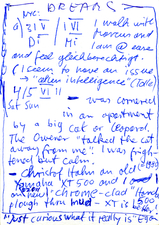 DREAMS
31 V / 1 VI I walk with
Di Mi and
I am @ ease
and feel gleichberechtigt.
(I seem to have an issue
→ "alien intelligence" (Tello)
4/5 VI !!
Sat Sun - was cornered
in an apartment
by a big cat or leopard.
The Owner "talked the cat
away from me". I was frigh-
tened but calm.
- Christof Hahn an old
Yamaha XT 500 and I
an new "chrome-clad"
plough thru mud - XT is
"just curious what it really is"